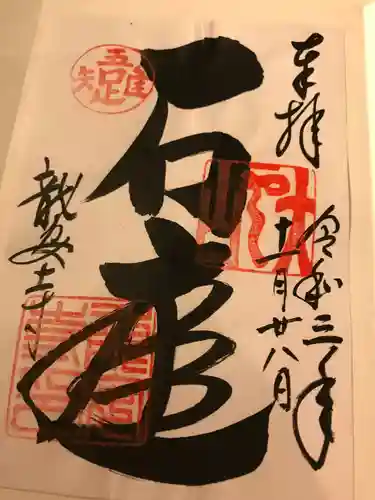 奉拝
令和三年
十一月廿八日
石庭
吾唯足知
龍安寺